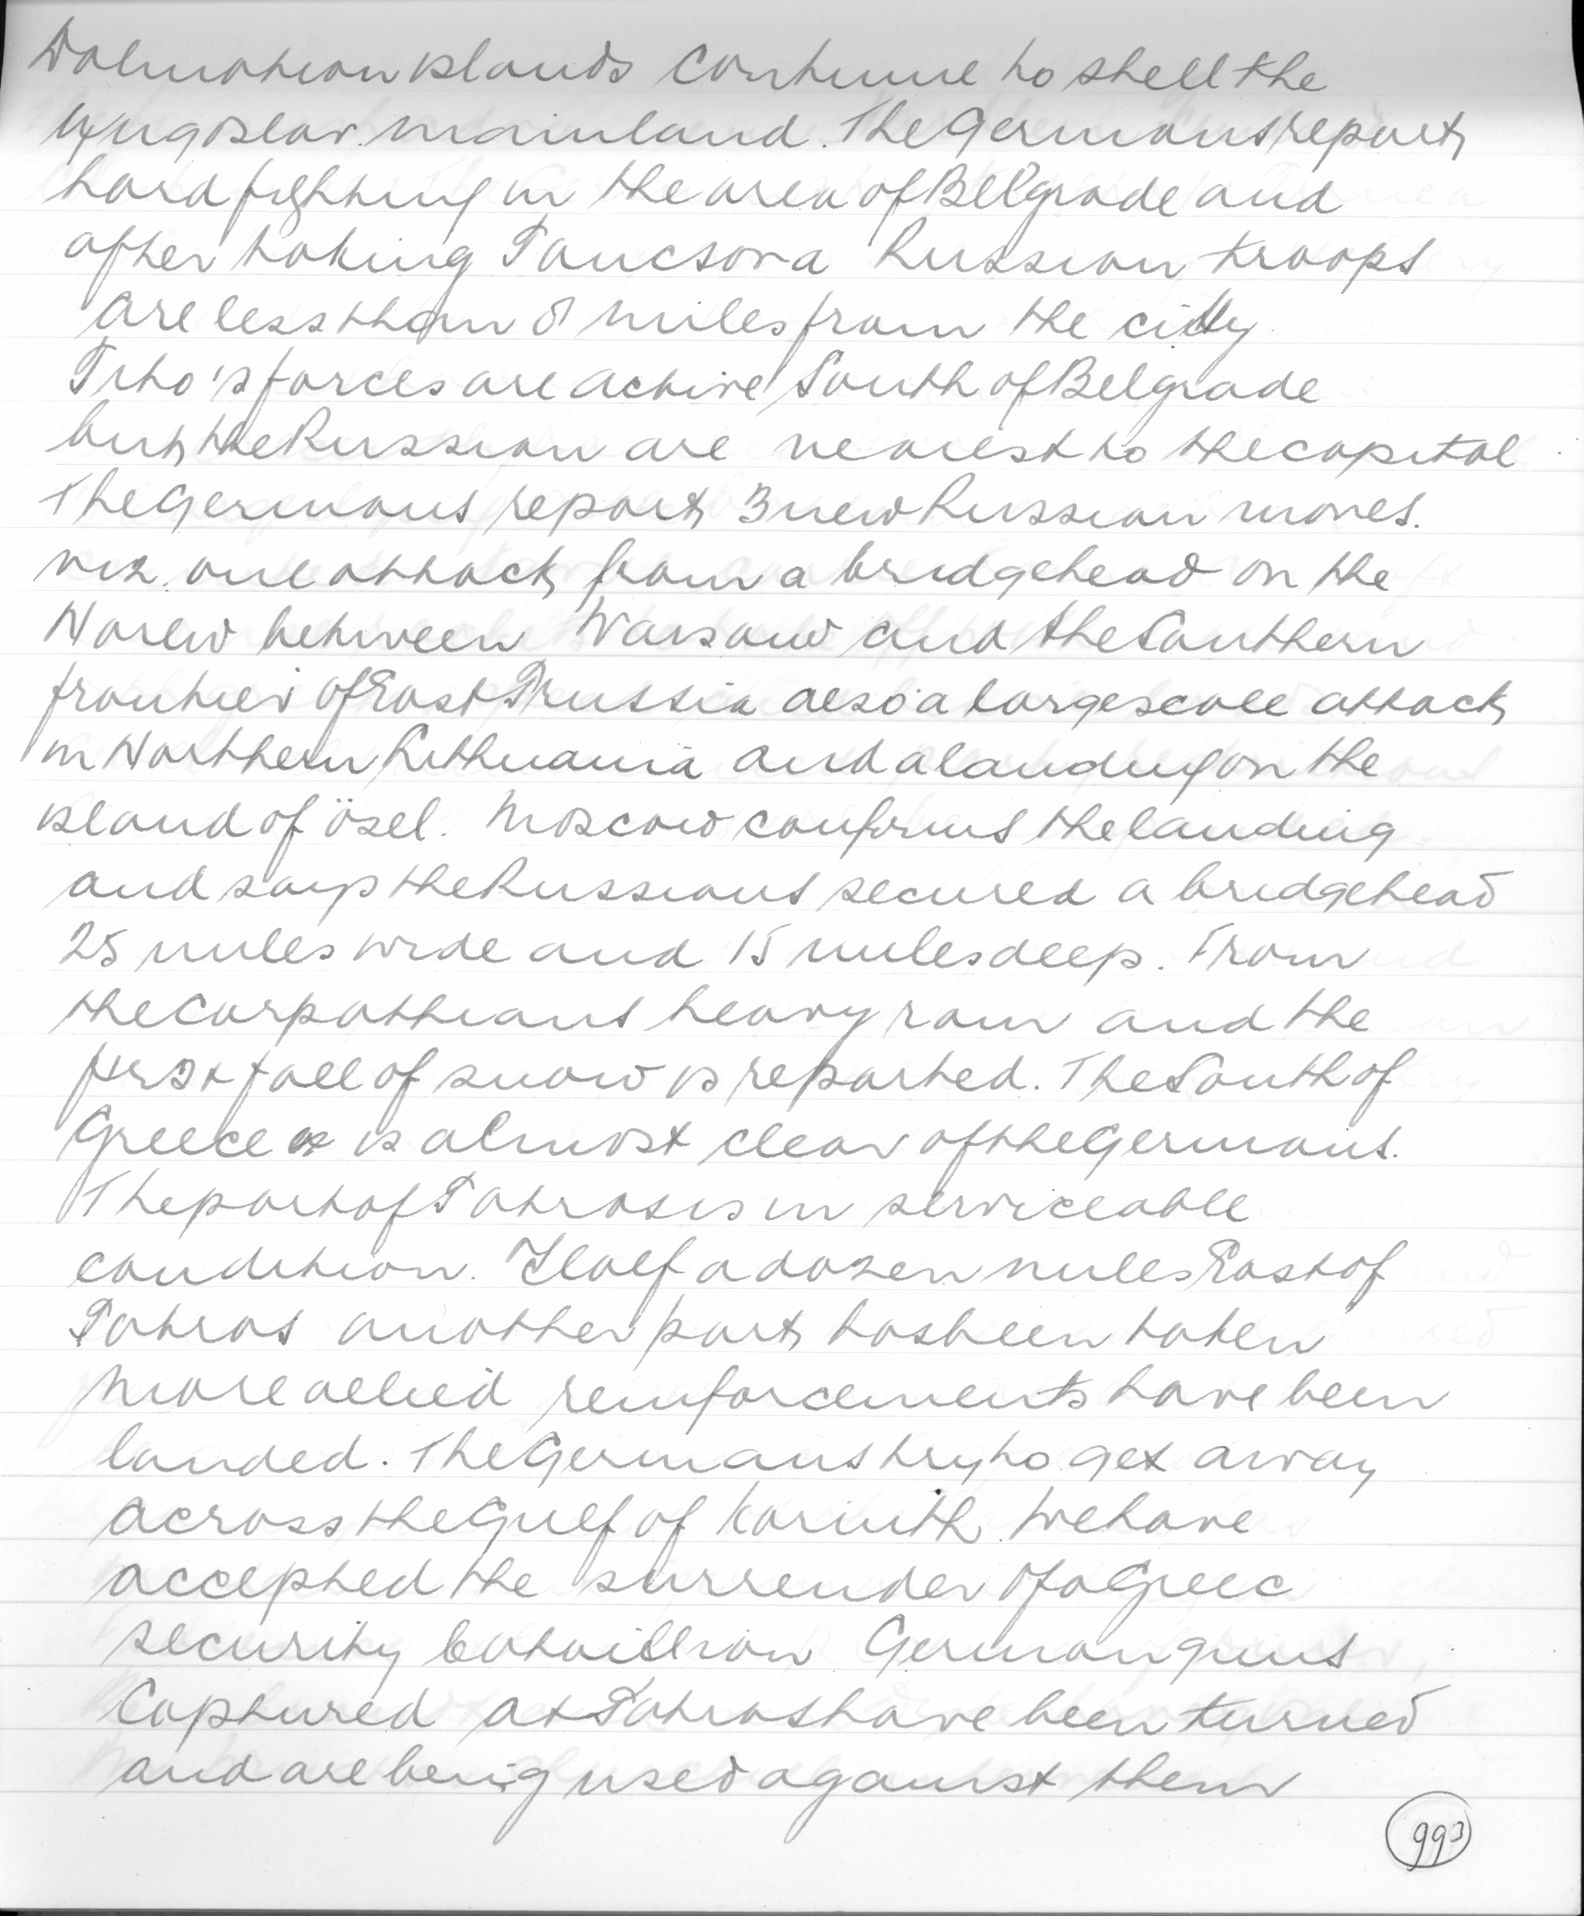 Dalmatian islands continue to shell the
Yugoslav. mainland. The Germans report
hard fighting in the area of Belgrade and
after taking Pancsova Russian troops
are less than 8 miles from the city
Tito's forces are active South of Belgrade
but the Russian are nearest to the capital
The Germans report 3 new Russian moves.
viz. one attack from a bridgehead on the
Narew between Warsaw and the Southern
frontier of East Prussia also a large scale attack
in Northern Lithuania and a landing on the
island of ösel. Moscow confirms the landing
and says the Russians secured a bridgehead
25 miles wide and 15 miles deep. From
the Carpathians heavy rain and the
first fall of snow is reported. The South of
Greece is almost clear of the Germans.
The port of Patras is in serviceable
condition. Half a dozen miles East of
Patras another port has been taken
More allied reinforcements have been
landed. The Germans try to get away
across the Gulf of Korinth. We have
accepted the surrender of a Greec
security bataillion German guns
Captured at Patras have been turned
and are being used against them
993